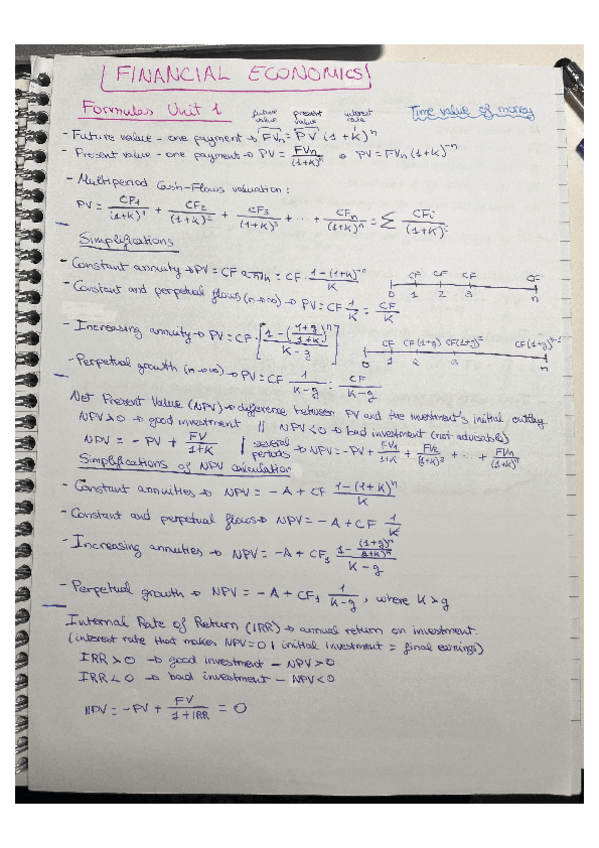 FINANCIAL ECONOMICS
Formulas Unit 1 Time value of money
future value present value interest rate
- Future value - one payment → FVn = PV (1+K)^n
- Present value - one payment → PV = FVn/(1+K)^n → PV = FVn (1+K)^-n
- Multiperiod Cash-Flows valuation:
PV = CF1/(1+K)^1 + CF2/(1+K)^2 + CF3/(1+K)^3 + ... + CFn/(1+K)^n = Σ CFi/(1+K)^i
Simplifications
- Constant annuity → PV = CF a n̅|K = CF · 1-(1+K)^-n/K
CF CF CF CF
0 1 2 3 n
- Constant and perpetual flows (n→∞) → PV = CF 1/K = CF/K
- Increasing annuity → PV = CF · [1-(1+g/1+K)^n / K-g]
CF CF(1+g) CF(1+g)^2 CF(1+g)^n-1
0 1 2 3 n
- Perpetual growth (n→∞) → PV = CF 1/K-g = CF/K-g
Net Present Value (NPV) → difference between PV and the investment's initial outlay
NPV>0 → good investment || NPV<0 → bad investment (not advisable)
NPV = -PV + FV/1+K | several periods → NPV = -PV + FV1/1+K + FV2/(1+K)^2 + ... + FVn/(1+K)^n
Simplifications of NPV calculation
- Constant annuities → NPV = -A + CF 1-(1+K)^n/K
- Constant and perpetual flows → NPV = -A + CF 1/K
- Increasing annuities → NPV = -A + CF1 1-(1+g)^n/(1+K)^n / K-g
- Perpetual growth → NPV = -A + CF1 1/K-g, where K>g
Internal Rate of Return (IRR) → annual return on investment.
(interest rate that makes NPV=0 | initial investment = final earnings)
IRR>0 → good investment - NPV>0
IRR<0 → bad investment - NPV<0
NPV = -PV + FV/1+IRR = 0